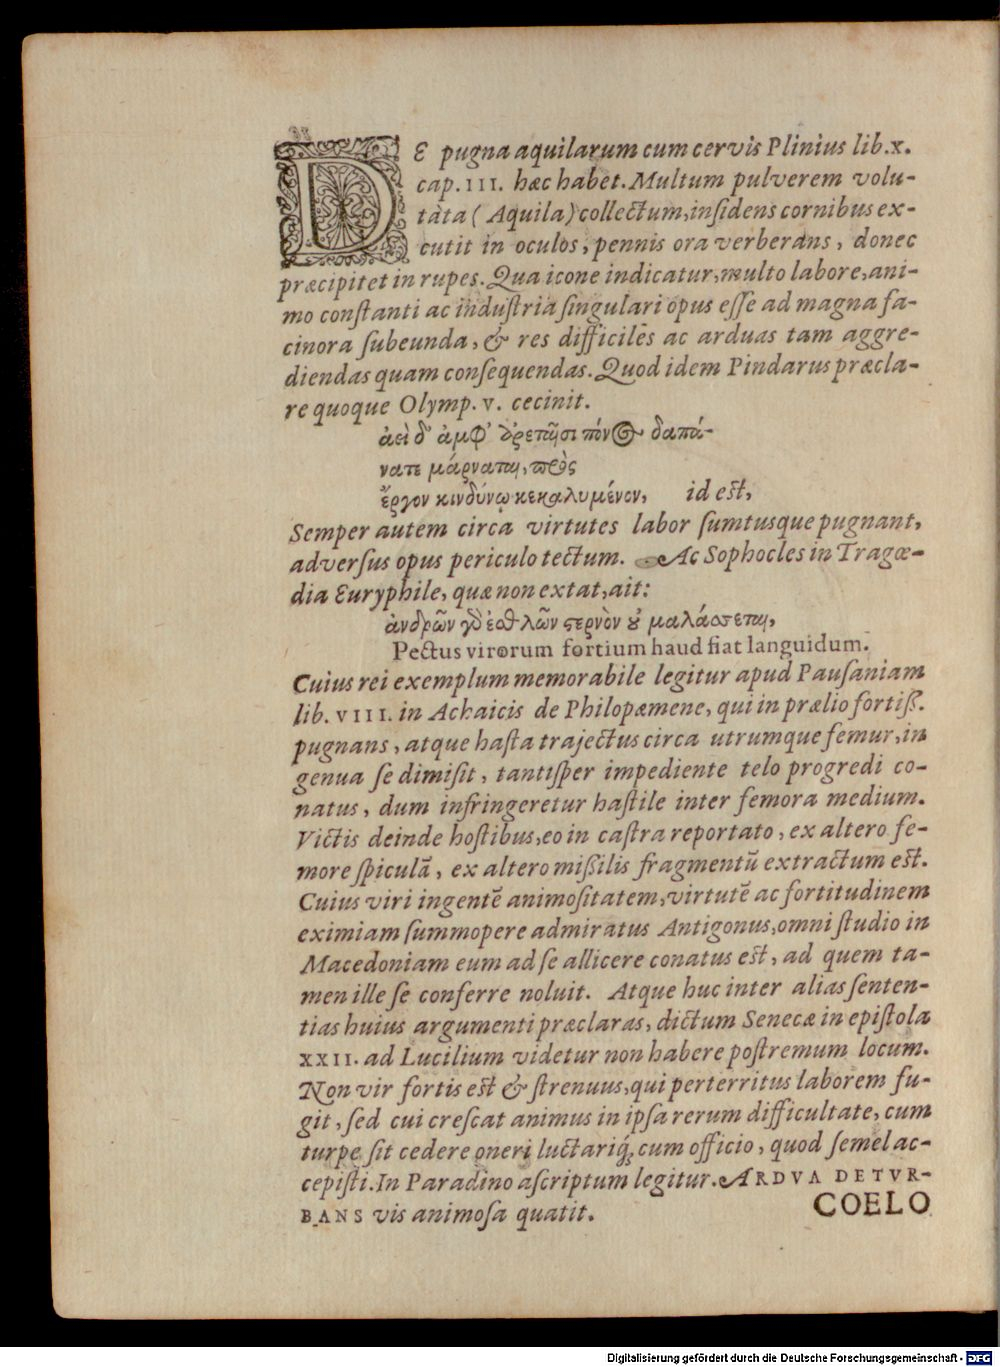 DE pugna aquilarum cum cervis Plinius lib.x.
cap. III. hæc habet. Multum pulverem volu-
tata (Aquila) collectum, inſidens cornibus ex-
cutit in oculos, pennis ora verberans, donec
præcipitet in rupes. Qua icone indicatur, multo labore, ani-
mo conſtanti ac induſtria ſingulari opus eſſe ad magna fa-
cinora ſubeunda, & res difficiles ac arduas tam aggre-
diendas quam conſequendas. Quod idem Pindarus præcla-
re quoque Olymp. v. cecinit.
ἀεὶ δ' ἀμφ' ἀρεταῖσι πόνος δαπά-
νατε μάρναται, πρὸς
ἔργον κινδύνῳ κεκαλυμένον, id est,
Semper autem circa virtutes labor ſumtusque pugnant,
adverſus opus periculo tectum. Ac Sophocles in Tragœ-
dia Euryphile, quæ non extat, ait:
ἀνδρῶν γὸ ἐσθλῶν στερνὸν ȣ μαλάσσεται,
Pectus virorum fortium haud fiat languidum.
Cuius rei exemplum memorabile legitur apud Pauſaniam
lib. VIII. in Achaicis de Philopæmene, qui in prælio fortiß.
pugnans, atque haſta trajectus circa utrumque femur, in
genua ſe dimiſit, tantiſper impediente telo progredi co-
natus, dum infringeretur haſtile inter femora medium.
Victis deinde hoſtibus, eo in caſtra reportato, ex altero fe-
more ſpiculā, ex altero mißilis fragmentū extractum est.
Cuius viri ingentē animoſitatem, virtutē ac fortitudinem
eximiam ſummopere admiratus Antigonus, omni ſtudio in
Macedoniam eum ad ſe allicere conatus est, ad quem ta-
men ille ſe conferre noluit. Atque huc inter alias ſenten-
tias huius argumenti præclaras, dictum Senecæ in epiſtola
XXII. ad Lucilium videtur non habere poſtremum locum.
Non vir fortis est & ſtrenuus, qui perterritus laborem fu-
git, ſed cui creſcat animus in ipſa rerum difficultate, cum
turpe ſit cedere oneri luctariq́; cum officio, quod ſemel ac-
cepiſti. In Paradino aſcriptum legitur. ARDVA DETVR-
BANS vis animoſa quatit.
COELO
Digitalisierung gefördert durch die Deutsche Forschungsgemeinschaft - DFG